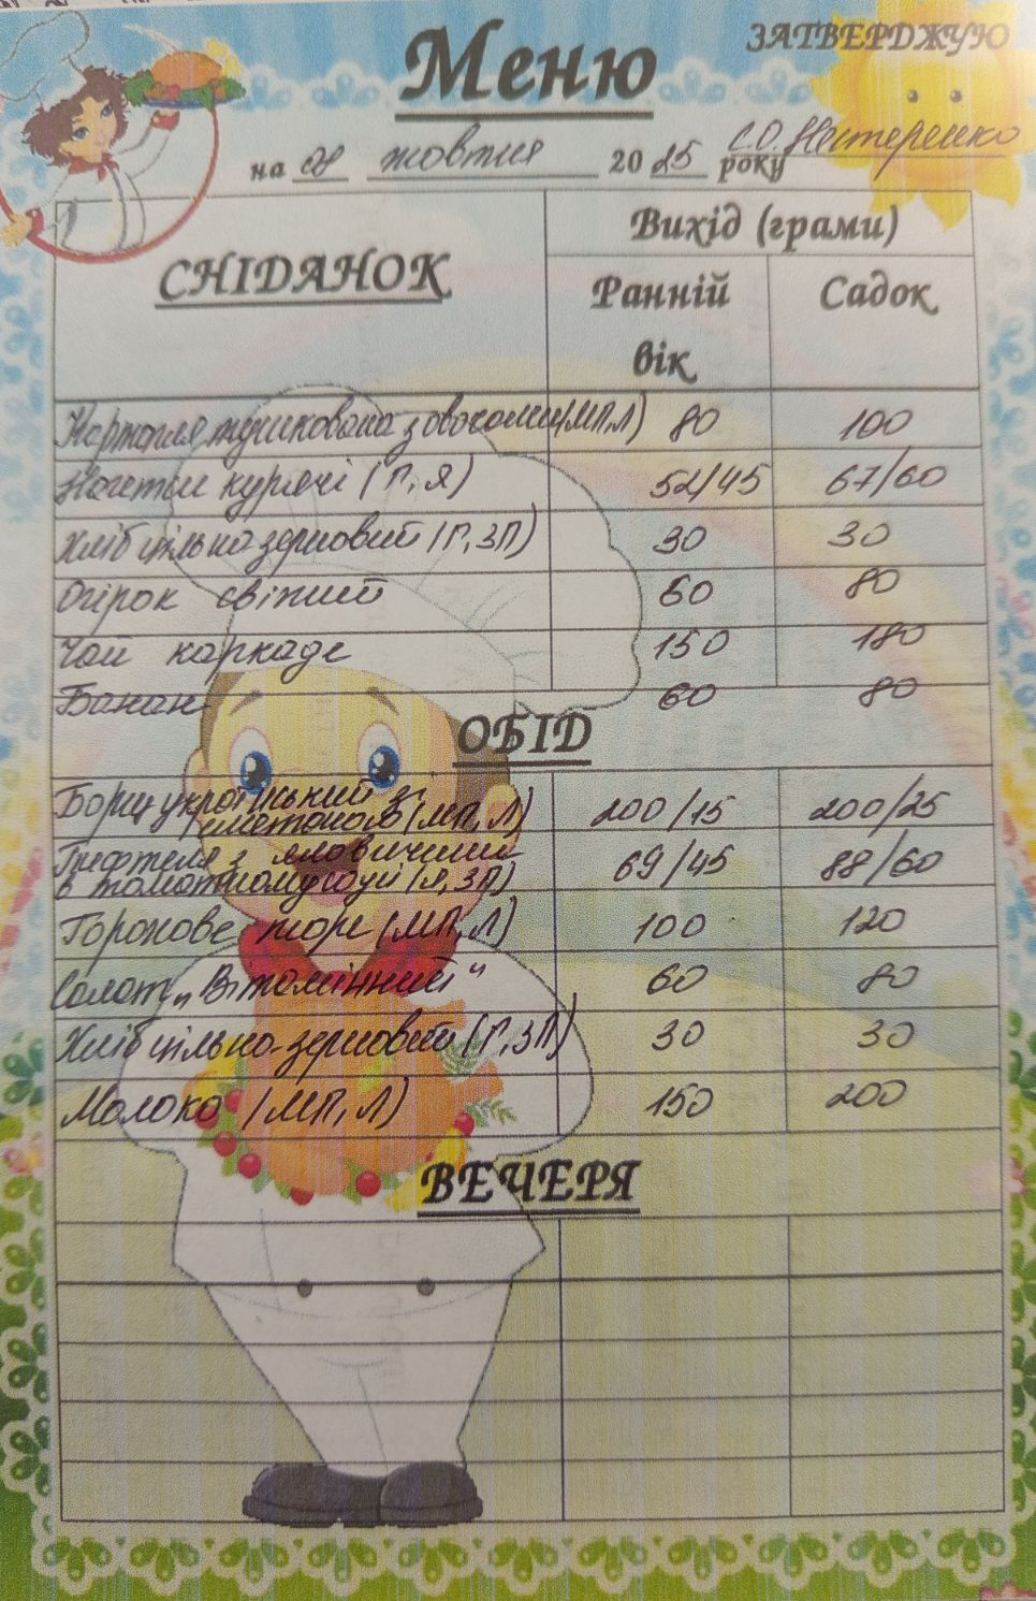 Меню
ЗАТВЕРДЖУЮ
С.О. Нестеренко
на жовтня 2025 року
СНІДАНОК
Вихід (грами)
Ранній вік
Садок
Картопля тушкована з овочами (МП,Л) 80 100
Нагетси курячі (Г,Я) 52/45 67/60
Хліб цільнозерновий (Г,ЗП) 30 30
Огірок свіжий 60 80
Чай каркаде 150 180
Банан 60 80
ОБІД
Борщ український зі
сметаною (МП,Л) 200/15 200/25
з яловичини
в томатному соусі (Я,ЗП) 69/45 88/60
Горохове пюре (МП,Л) 100 120
Салат „Вітамінний" 60 80
Хліб цільно-зерновий (Г,ЗП) 30 30
Молоко (МП,Л) 150 200
ВЕЧЕРЯ